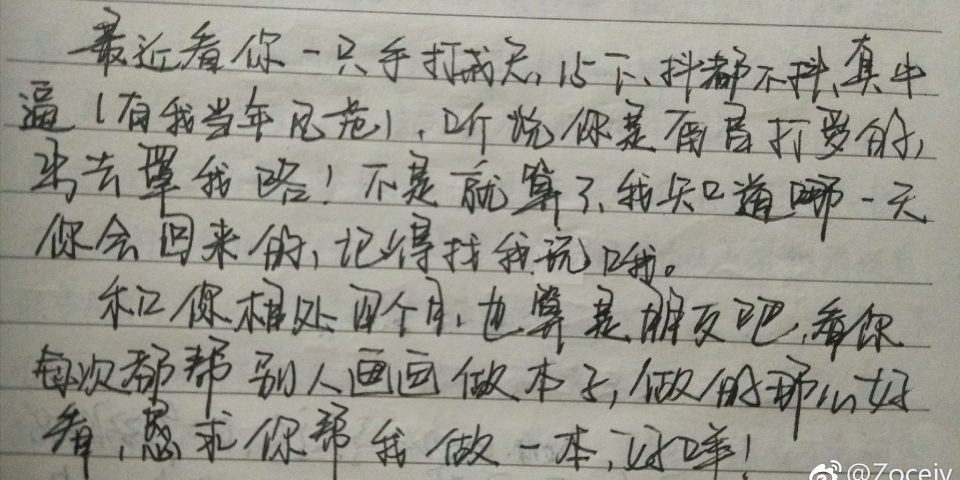 最近看你一只手打成天,15下,抖都不抖,真牛
逼(有我当年风范),听说你是有官打受的,
出去罩我哈!不是就算了,我知道哪一天
你会回来的,记得找我玩哦。
和你相处四个月,也算是朋友吧,看你
每次都帮别人画画做本子,做的那么好
看,恳求你帮我做一本,好咩!
@Zoceiv